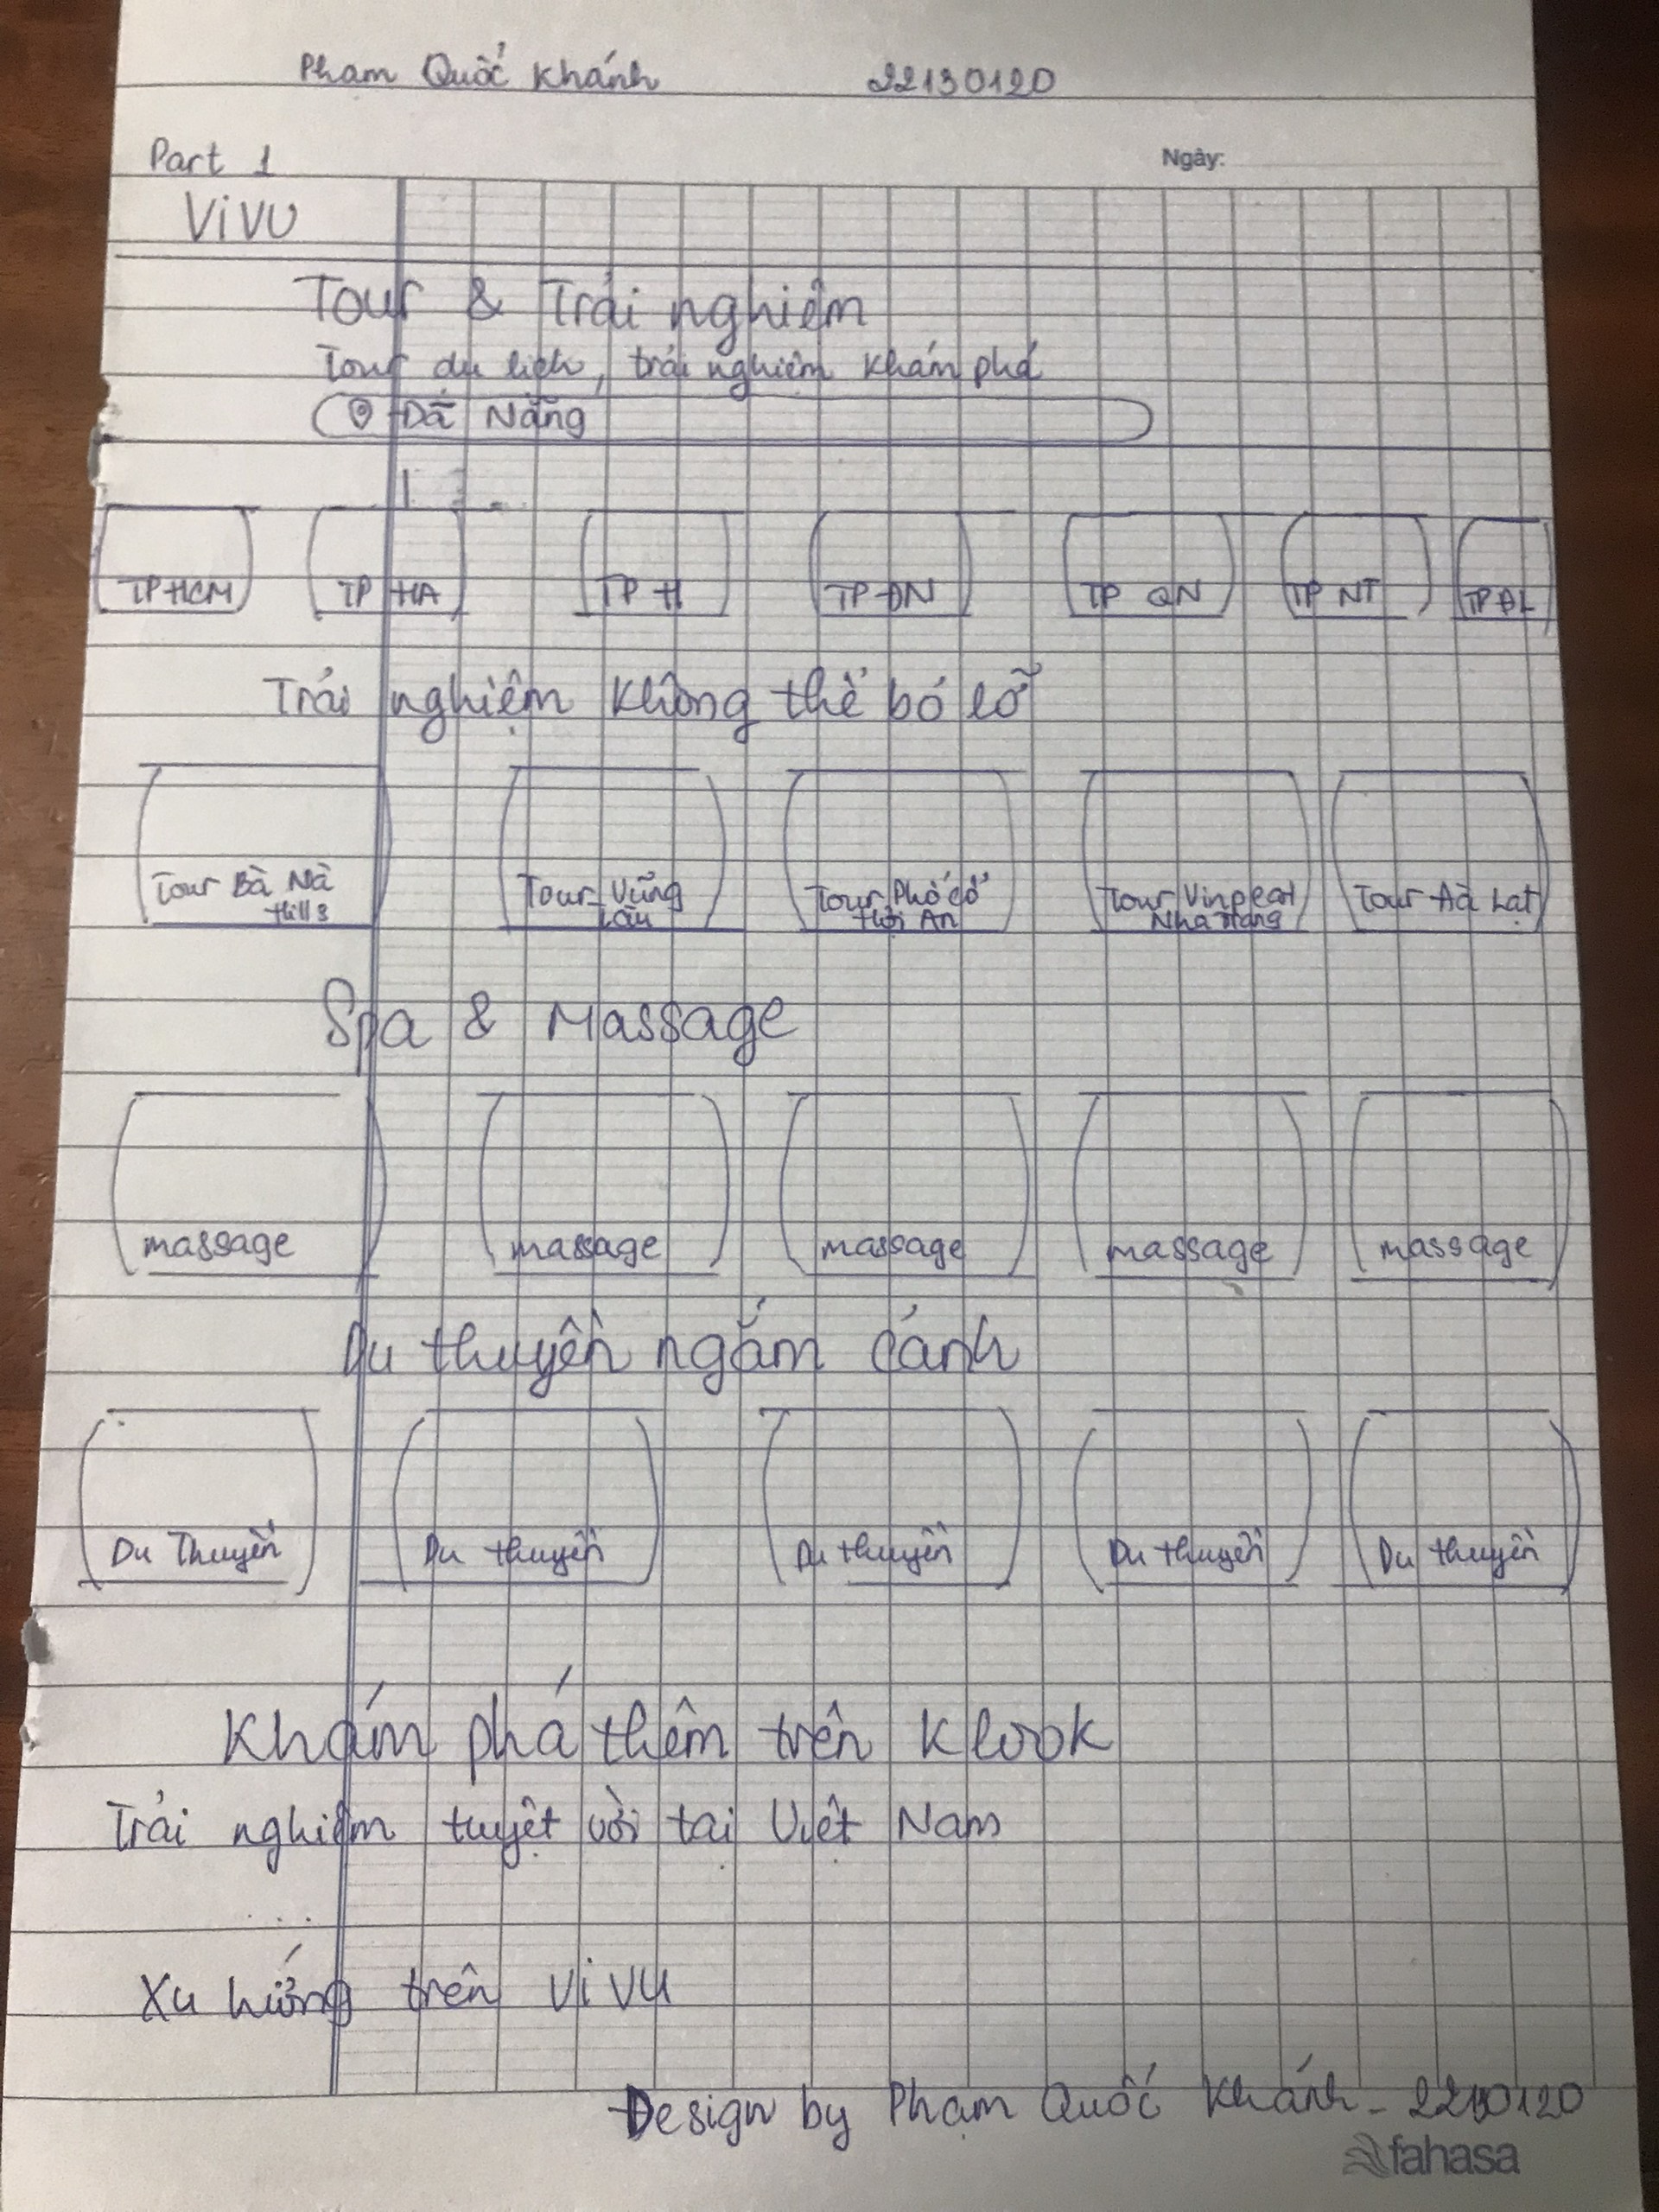 Pham Quốc Khánh 22130120
Part 1
Ngày:
ViVU
Tour & Trải nghiệm
Tour du lịch, trải nghiệm khám phá
Đà Nẵng
TP HCM TP HA TP H TP ĐN TP QN TP NT TP ĐL
Trải nghiệm không thể bỏ lỡ
Tour Bà Nà Hills
Tour Vũng Tàu
Tour Phố cổ Hội An
Tour Vinpearl Nha Trang
Tour Đà Lạt
Spa & Massage
massage massage massage massage massage
Du thuyền ngắm cảnh
Du Thuyền Du thuyền Du thuyền Du thuyền Du thuyền
Khám phá thêm trên Klook
Trải nghiệm tuyệt vời tại Việt Nam
Xu hướng trên ViVU
Design by Phạm Quốc Khánh - 22130120
fahasa